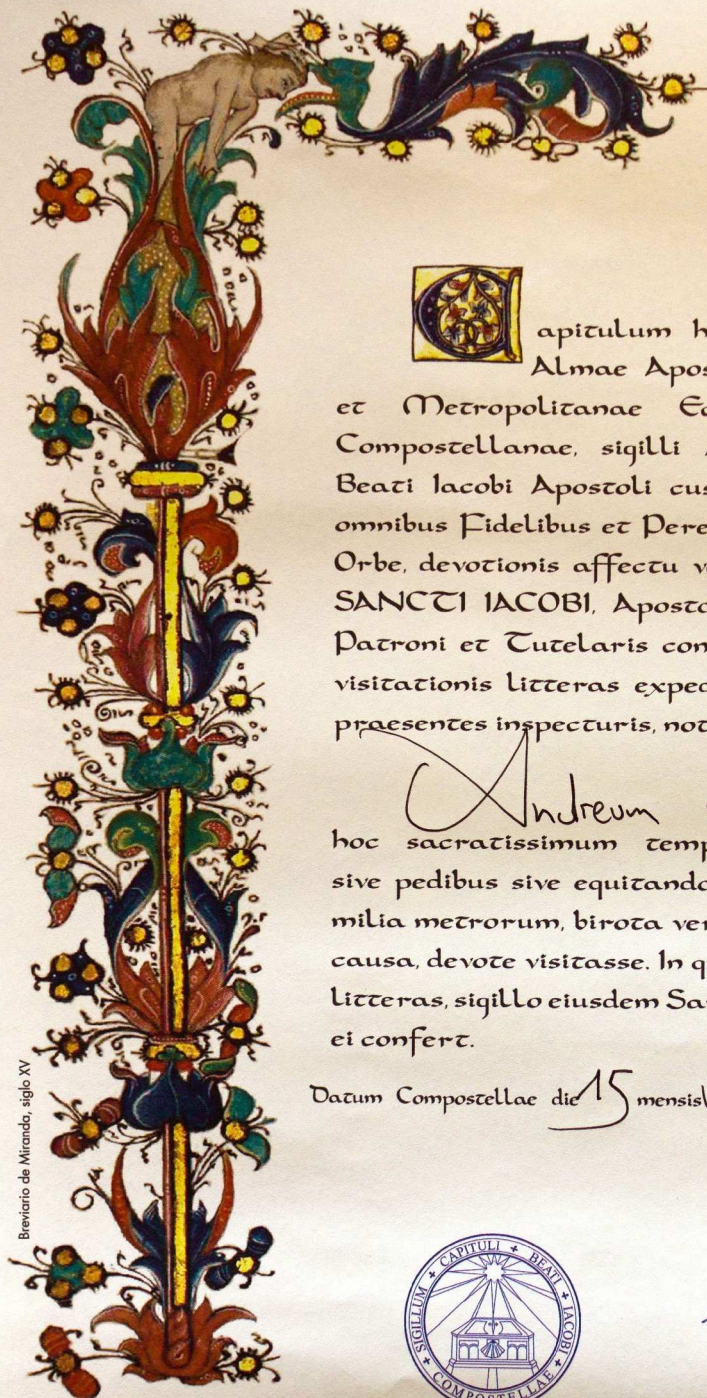 Capitulum h
Almae Apos
et Metropolitanae Ec
Compostellanae, sigilli
Beati Iacobi Apostoli cus
omnibus Fidelibus et Pere
Orbe, devotionis affectu v
SANCTI IACOBI, Aposto
Patroni et Tutelaris con
visitationis litteras exped
praesentes inspecturis, not
Andreum
hoc sacratissimum temp
sive pedibus sive equitando
milia metrorum, birota ver
causa, devote visitasse. In q
litteras, sigillo eiusdem Sa
ei confert.
Datum Compostellae die 15 mensis
Breviario de Miranda, siglo XV
SIGILLUM + CAPITULI + BEATI + IACOBI + COMPOSTELLAE +